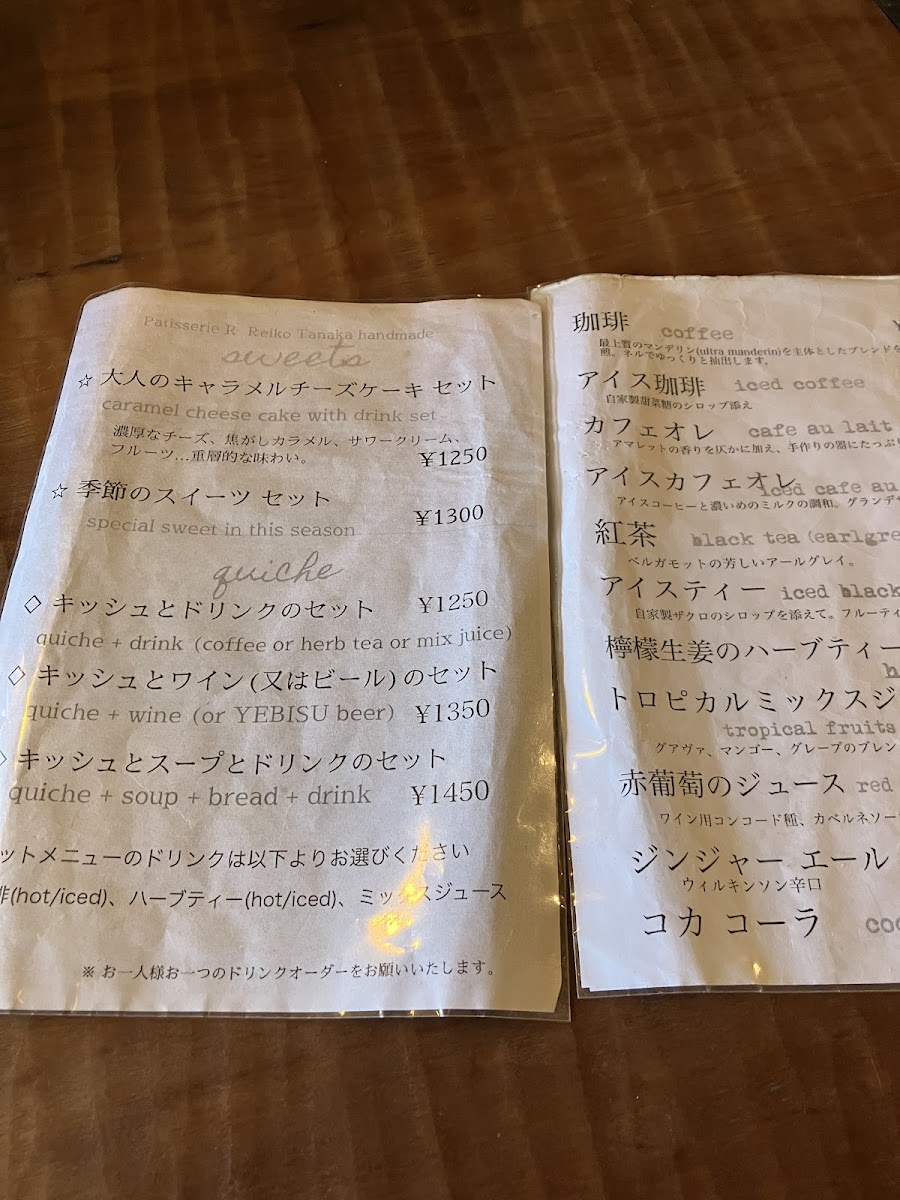 Patisserie R Reiko Tanaka handmade
sweets
☆ 大人のキャラメルチーズケーキ セット
caramel cheese cake with drink set
濃厚なチーズ、焦がしカラメル、サワークリーム、
フルーツ…重層的な味わい。 ¥1250
☆ 季節のスイーツ セット
special sweet in this season ¥1300
quiche
◇ キッシュとドリンクのセット ¥1250
quiche + drink (coffee or herb tea or mix juice)
◇ キッシュとワイン(又はビール)のセット
quiche + wine (or YEBISU beer) ¥1350
◇ キッシュとスープとドリンクのセット
quiche + soup + bread + drink ¥1450
ットメニューのドリンクは以下よりお選びください
(hot/iced)、ハーブティー(hot/iced)、ミックスジュース
※ お一人様お一つのドリンクオーダーをお願いいたします。
珈琲 coffee
最上質のマンデリン(ultra manderin)を主体としたブレンドを
煎。ネルでゆっくりと抽出します。
アイス珈琲 iced coffee
自家製甜菜糖のシロップ添え
カフェオレ cafe au lait
アマレットの香りを仄かに加え、手作りの器にたっぷり
アイスカフェオレ iced cafe au
アイスコーヒーと濃いめのミルクの調和。グランデ
紅茶 black tea (earlgre
ベルガモットの芳しいアールグレイ。
アイスティー iced black
自家製ザクロのシロップを添えて。フルーティ
檸檬生姜のハーブティー
h
トロピカルミックスジ
tropical fruits
グアヴァ、マンゴー、グレープのブレン
赤葡萄のジュース red
ワイン用コンコード種、カベルネソー
ジンジャー エール
ウィルキンソン辛口
コカ コーラ coc